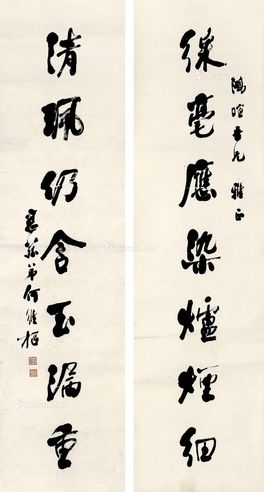 鴻暄吾兄雅正
綵毫應染爐煙細
清珮仍含玉漏重
詩孫弟何維樸